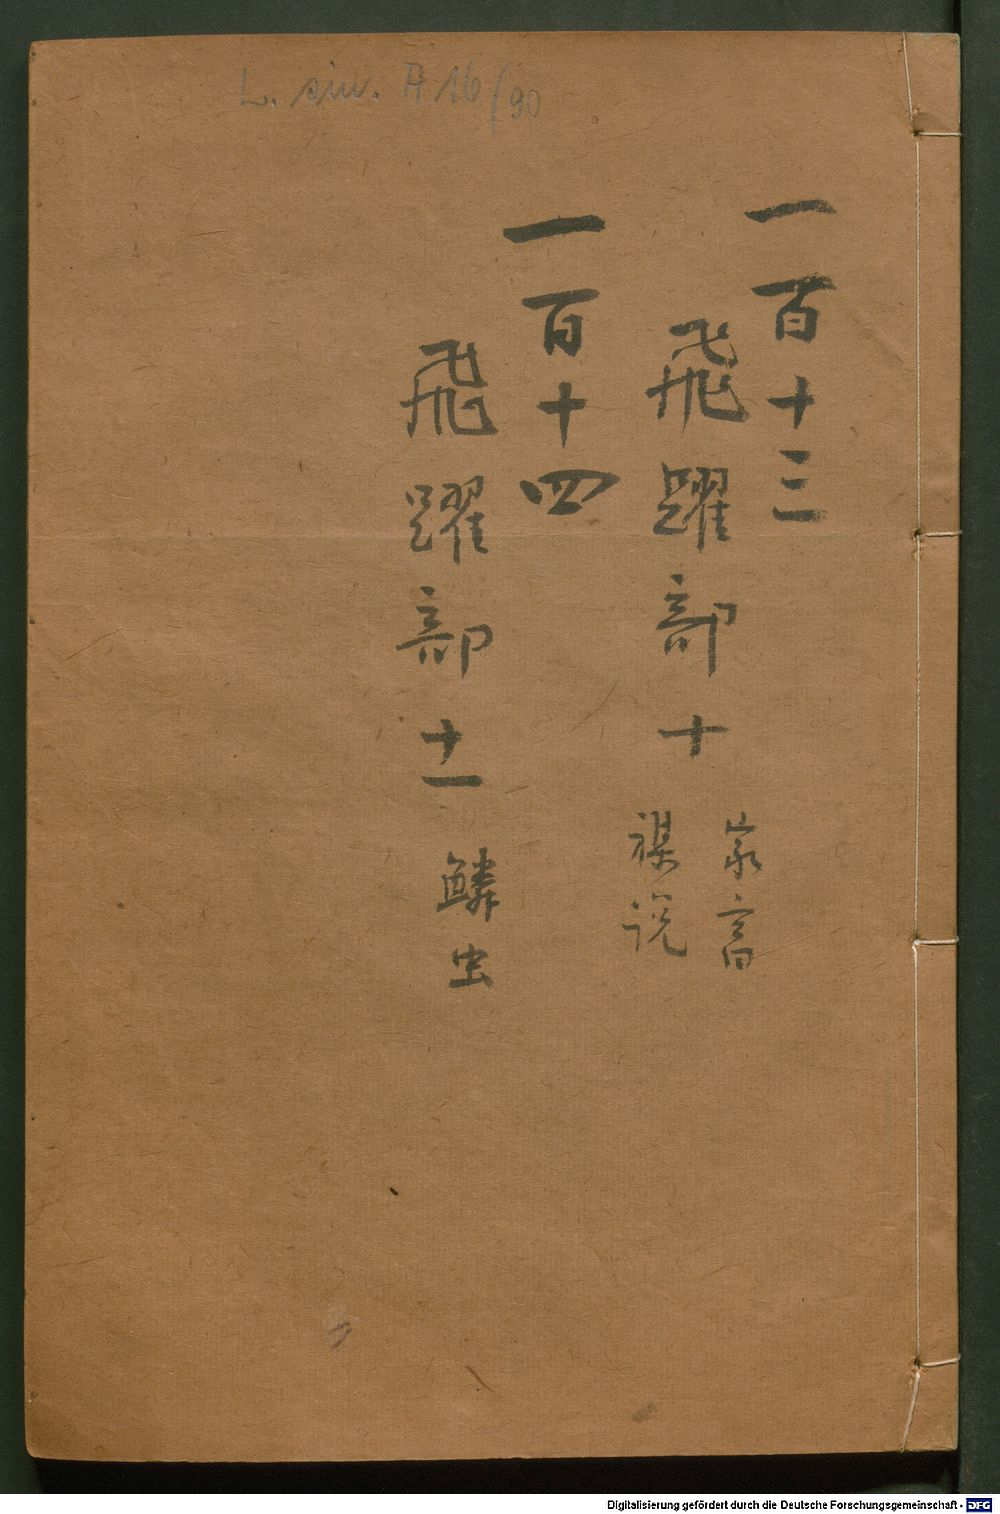 L. sin. A 16/90
一百十三
飛躍部十
家畜
禖説
一百十四
飛躍部十一
鱗虫
Digitalisierung gefördert durch die Deutsche Forschungsgemeinschaft - DFG